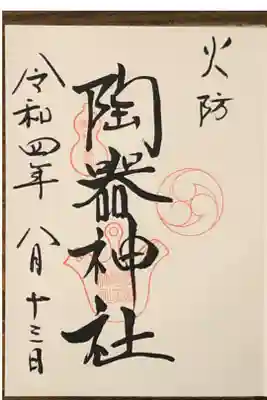 火防
陶器神社
令和四年 八月十三日